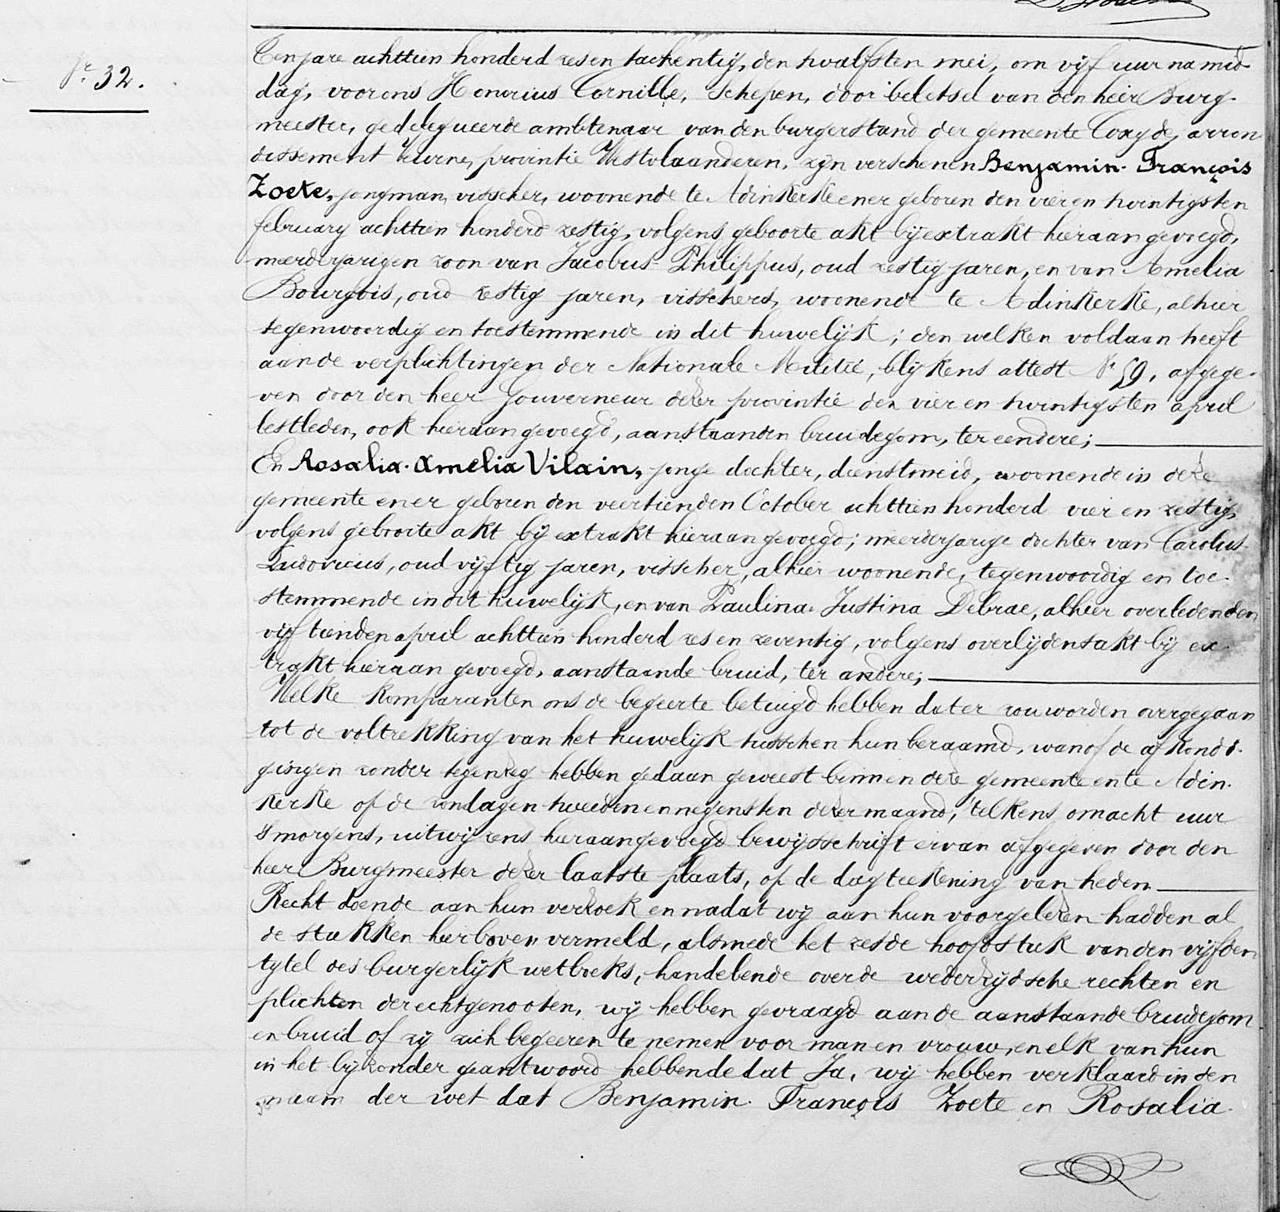 Nr 32.
Ten jare achttien honderd zes en tachentig, den twalfsten mei, om vijf uur namid-
dag, voor ons Honorius Cornille, Schepen, door beletsel van den heer Burg-
meester, gedelegueerde ambtenaar van den burgerstand der gemeente Coxyde, arron-
dissement Veurne, provintie Westvlaanderen, zijn verschenen Benjamin François
Zoete, jongman, visscher, woonende te Adinkerke en er geboren den vier en twintigsten
february achttien honderd zestig, volgens geboorte akt bij extrakt hieraan gevoegd,
meerderjarigen zoon van Jacobus Philippus, oud zestig jaren, en van Amelia
Bourgois, oud zestig jaren, visschers, woonende te Adinkerke, alhier
tegenwoordig en toestemmende in dit huwelijk; den welken voldaan heeft
aan de verplichtingen der Nationale Militie, blijkens attest Nr 59, afgege-
ven door den heer Gouverneur dezer provintie den vier en twintigsten april
lestleden, ook hieraan gevoegd, aanstaanden bruidegom, ter eendere;
En Rosalia Amelia Vilain, jonge dochter, dienstmeid, woonende in deze
gemeente en er geboren den veertienden October achttien honderd vier en zestig,
volgens geboorte akt bij extrakt hieraan gevoegd; meerderjarige dochter van Carolus
Ludovicus, oud vijftig jaren, visscher, alhier woonende, tegenwoordig en toe-
stemmende in dit huwelijk, en van Paulina Justina Debrae, alhier overleden den
vijftienden april achttien honderd zes en zeventig, volgens overlijdensakt bij ex-
trakt hieraan gevoegd, aanstaande bruid, ter andere;
Welke komparanten ons de begeerte betuigd hebben dat er zou worden overgegaan
tot de voltrekking van het huwelijk tusschen hun beraamd, wanof de afkondi-
gingen zonder tegenzeg hebben gedaan geweest binnen deze gemeente en te Adin-
kerke op de zondagen tweeden en negensten dezer maand, telkens om acht uur
's morgens, uitwijzens hieraangevoegd bewijsschrift ervan afgegeven door den
heer Burgmeester dezer laatste plaats, op de dagteekening van heden.
Recht doende aan hun verzoek en nadat wij aan hun voorgelezen hadden al
de stukken hierboven vermeld, alsmede het zesde hoofdstuk van den vijfden
tytel des burgerlijk wetboeks, handelende over de wederzijdsche rechten en
plichten der echtgenooten, wij hebben gevraagd aan de aanstaande bruidegom
en bruid of zij zich begeeren te nemen voor man en vrouw, en elk van hun
in het bijzonder geantwoord hebbende dat Ja, wij hebben verklaard in den
naam der wet dat Benjamin François Zoete en Rosalia